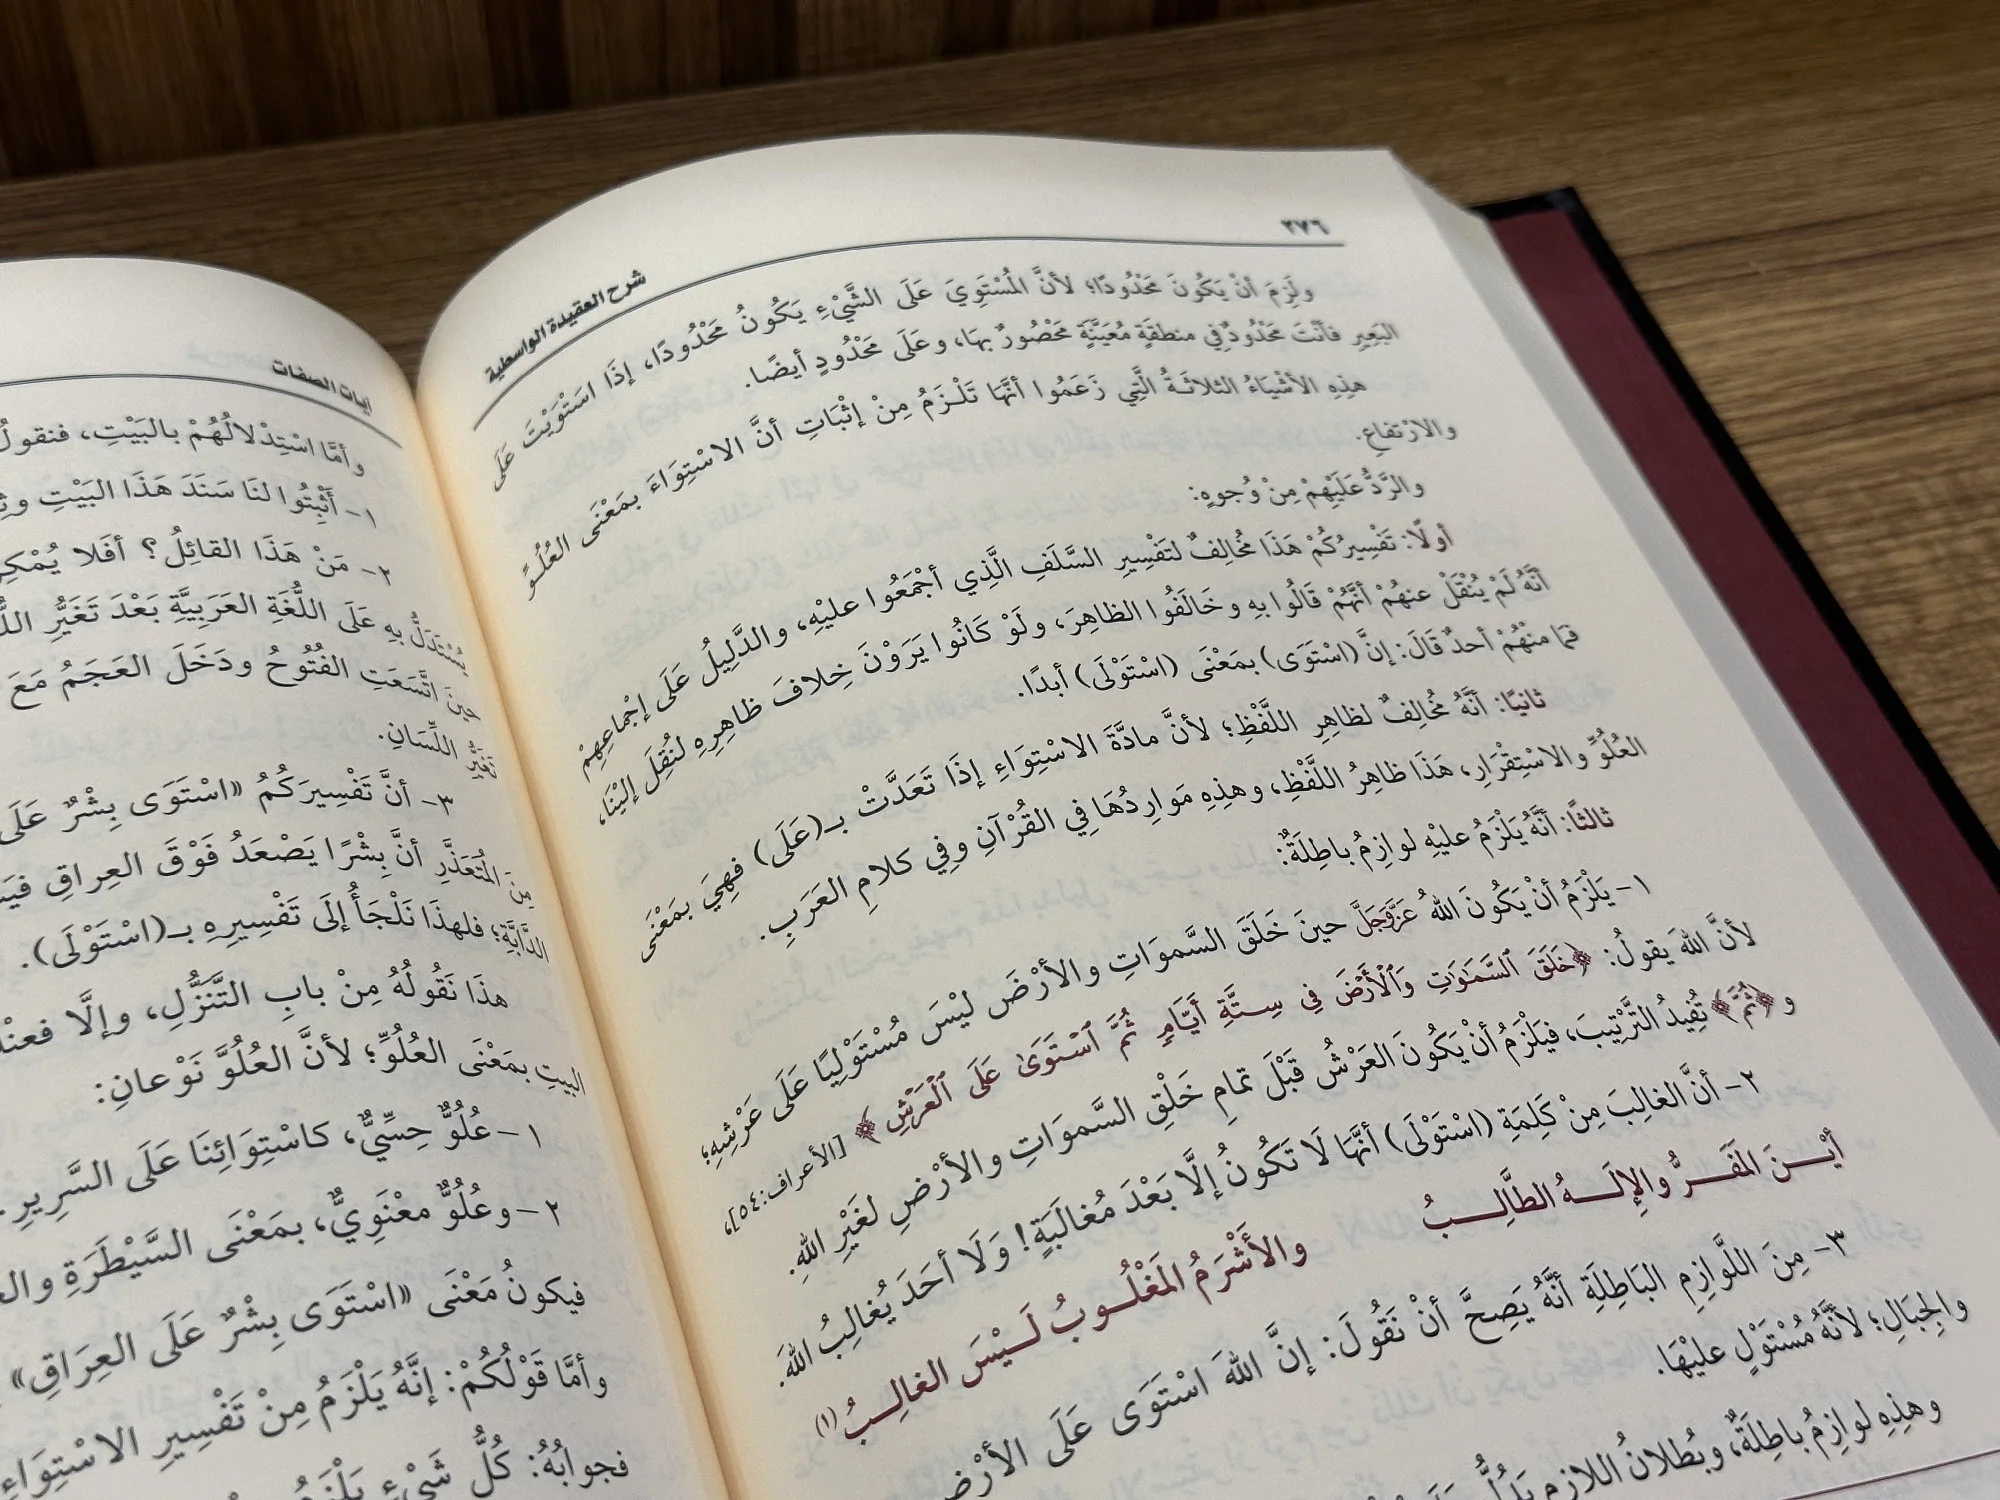 ٢٧٦
شرح العقيدة الواسطية
ولَزِمَ أنْ يَكُونَ مَحْدُودًا؛ لأنَّ المُسْتَوِيَ عَلَى الشَّيْءِ يَكُونُ مَحْدُودًا، إذَا اسْتَوَيْتَ عَلَى
البَعِيرِ فأنْتَ مَحْدُودٌ فِي منطقَةٍ مُعَيَّنَةٍ مَحْصُورٌ بهَا، وعَلَى مَحْدُودٍ أيضًا.
هذِهِ الأشْيَاءُ الثلاثَةُ الَّتِي زَعَمُوا أنَّها تَلْزَمُ مِنْ إثْبَاتِ أنَّ الاسْتِوَاءَ بمَعْنَى العُلُوِّ
والارْتفاعِ.
والرَّدُّ عَلَيْهِمْ مِنْ وُجوهٍ:
أولًا: تَفْسِيرُكُمْ هَذَا مُخالِفٌ لتَفْسِيرِ السَّلَفِ الَّذِي أجْمَعُوا عليْهِ، والدَّلِيلُ عَلَى إجْماعِهِمْ
أنَّهُ لَمْ يُنْقَلْ عنهُمْ أنَّهُمْ قَالُوا بهِ وخَالَفُوا الظاهِرَ، ولَوْ كَانُوا يَرَوْنَ خِلافَ ظاهِرِهِ لنُقِلَ إلَيْنَا،
فمَا منْهُمْ أحدٌ قَالَ: إنَّ (اسْتَوَى) بمَعْنَى (اسْتَوْلَى) أبدًا.
ثانيًا: أنَّهُ مُخالِفٌ لظاهِرِ اللَّفْظِ؛ لأنَّ مادَّةَ الاسْتِوَاءِ إذَا تَعَدَّتْ بـ(عَلَى) فهِيَ بمَعْنَى
العُلُوِّ والاسْتِقْرارِ، هَذَا ظاهِرُ اللَّفْظِ، وهذِهِ مَوارِدُهَا فِي القُرْآنِ وفِي كلامِ العَرَبِ.
ثالثًا: أنَّهُ يَلْزَمُ عليْهِ لوازِمُ باطِلَةٌ:
١- يَلْزَمُ أنْ يَكُونَ اللهُ عَزَّوَجَلَّ حينَ خَلَقَ السَّموَاتِ والأرْضَ ليْسَ مُسْتَوْلِيًا عَلَى عَرْشِهِ؛
لأنَّ اللهَ يقولُ: ﴿خَلَقَ ٱلسَّمَٰوَٰتِ وَٱلْأَرْضَ فِى سِتَّةِ أَيَّامٍ ثُمَّ ٱسْتَوَىٰ عَلَى ٱلْعَرْشِ﴾ [الأعراف:٥٤]،
و﴿ثُمَّ﴾ تُفِيدُ التَّرْتِيبَ، فيَلْزَمُ أنْ يَكُونَ العَرْشُ قَبْلَ تمامِ خَلْقِ السَّموَاتِ والأرْضِ لغَيْرِ اللهِ.
٢- أنَّ الغالِبَ مِنْ كَلِمَةِ (اسْتَوْلَى) أنَّهَا لَا تَكُونُ إلَّا بَعْدَ مُغالَبَةٍ! وَلَا أحَدَ يُغالِبُ اللهَ.
أيْـنَ المَفَـرُّ والإلَـهُ الطَّالِـبُ والأَشْرَمُ المَغْلُـوبُ لَـيْسَ الغالِـبُ (١)
٣- مِنَ اللَّوازِمِ البَاطِلَةِ أنَّهُ يَصِحَّ أنْ نَقُولَ: إنَّ اللهَ اسْتَوَى عَلَى الأرْضِ
والجِبَالِ؛ لأنَّهُ مُسْتَوْلٍ عليْهَا.
وهذِهِ لوازِمُ باطِلَةٌ، وبُطلانُ اللازِمِ يَدُلُّ
آيات الصفات
وأمَّا اسْتِدْلالُهُمْ بالبَيْتِ، فنقولُ
١- أَثْبِتُوا لنَا سَنَدَ هَذَا البَيْتِ
٢- مَنْ هَذَا القائِلُ؟ أفَلا يُمْكِنُ
يُسْتَدَلُّ بهِ عَلَى اللُّغَةِ العَرَبِيَّةِ بَعْدَ تَغَيُّرِ
حينَ اتَّسَعَتِ الفُتُوحُ ودَخَلَ العَجَمُ مَعَ
تَغَيُّرُ اللِّسَانِ.
٣- أنَّ تَفْسِيرَكُمُ «اسْتَوَى بِشْرٌ عَلَى
مِنَ المُتَعَذَّرِ أنَّ بِشْرًا يَصْعَدُ فَوْقَ العِراقِ
الدَّابَّةِ؛ فلهذَا نَلْجَأُ إلَى تَفْسِيرِهِ بـ(اسْتَوْلَى).
هذَا نَقُولُهُ مِنْ بابِ التَّنَزُّلِ، وإلَّا
البيتِ بمَعْنَى العُلُوِّ؛ لأنَّ العُلُوَّ نَوْعانِ:
١- عُلُوٌّ حِسِّيٌّ، كاسْتِوَائِنَا عَلَى السَّرِيرِ.
٢- وعُلُوٌّ معْنَوِيٌّ، بمَعْنَى السَّيْطَرَةِ
فيكونُ مَعْنَى «اسْتَوَى بِشْرٌ عَلَى العِرَاقِ»
وأمَّا قَوْلُكُمْ: إنَّهُ يَلْزَمُ مِنْ تَفْسِيرِ الاسْتِوَاءِ
فجوابُهُ: كُلُّ شَيْءٍ يَلْزَمُ